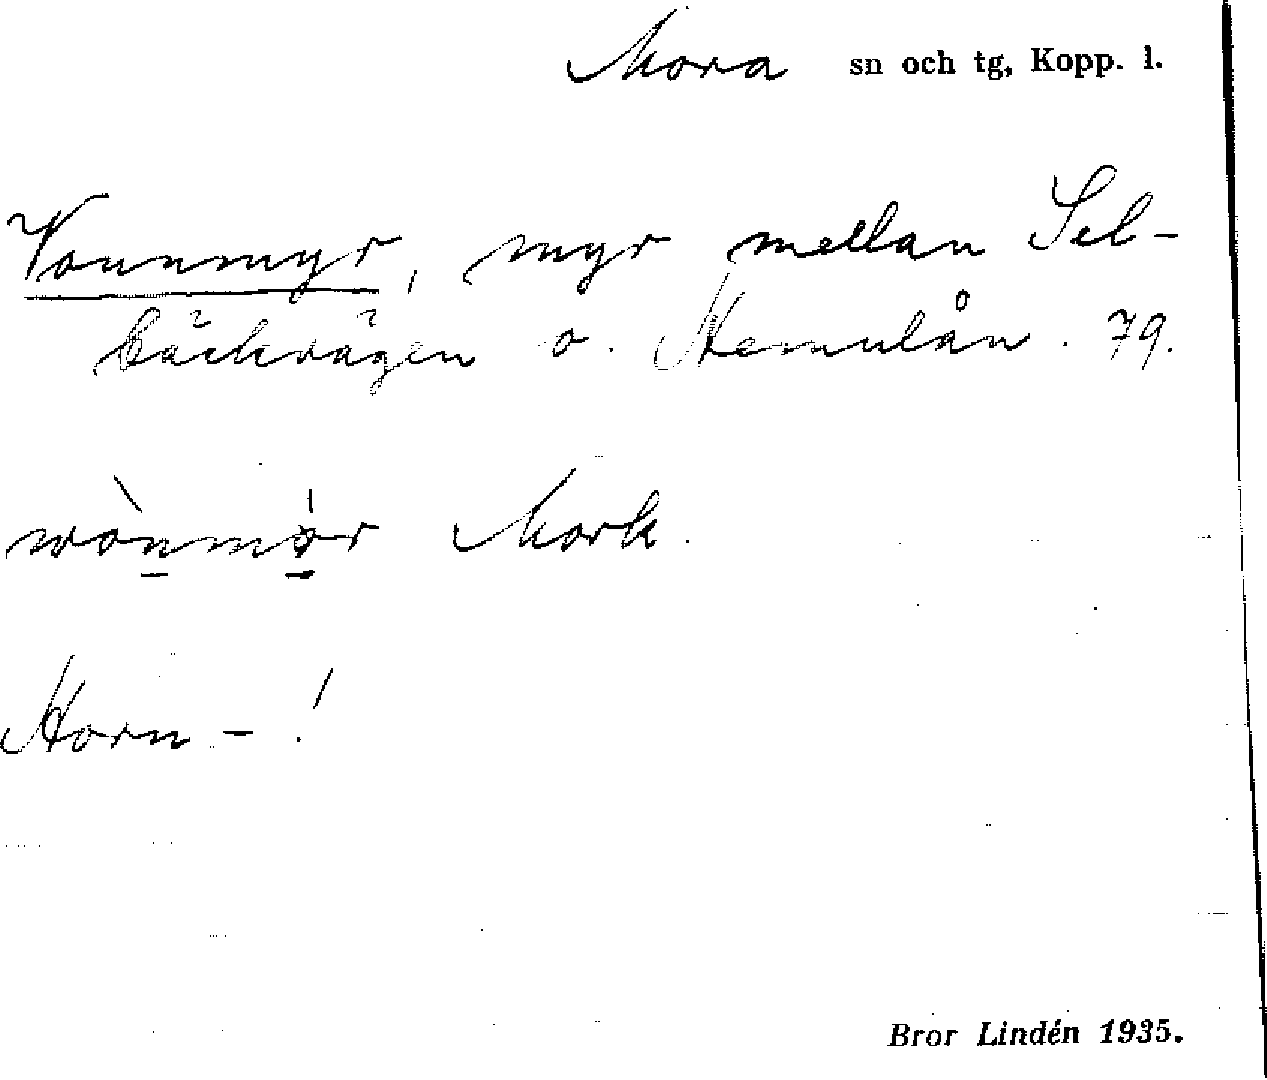 Mora sn och tg, Kopp. l.
Vounmyr, myr mellan Sel-
bäckvägen o. Hemulån. 79.
wònmör Mork.
Horn-!
Bror Lindén 1935.